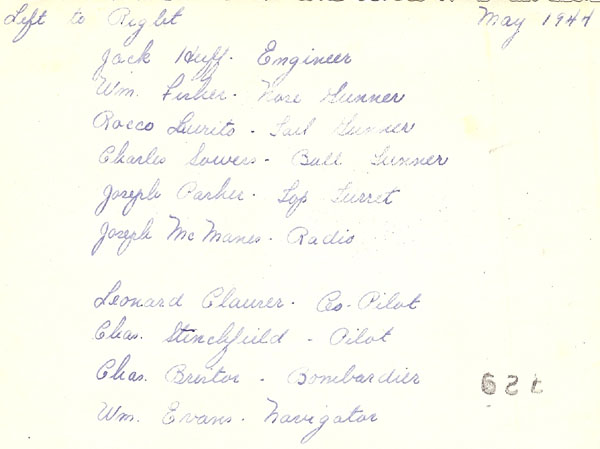 Left to Right May 1944
Jack Huff - Engineer
Wm. Fisher - Nose Gunner
Rocco Luurito - Tail Gunner
Charles Sowers - Ball Gunner
Joseph Parker - Top Turret
Joseph McManes - Radio
Leonard Claurer - Co-Pilot
Chas. Stinchfield - Pilot
Chas. Bristor - Bombardier
Wm. Evans - Navigator